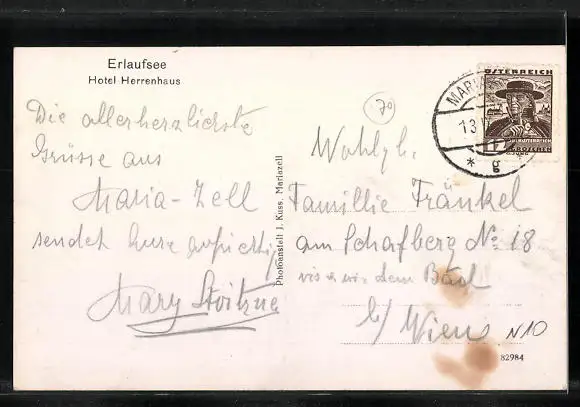 Erlaufsee
Hotel Herrenhaus
70
MARIA
ÖSTERREICH
13
* g
Die allerherzlichste
Grüsse aus
Maria-Zell
sendet Eure aufrichtig
Mary
Photoanstalt J. Kuss, Mariazell
Wohlgb.
Famillie Fränkel
am Schafberg No 18
vis a vis dem Bad
b/ Wien
N10
82984